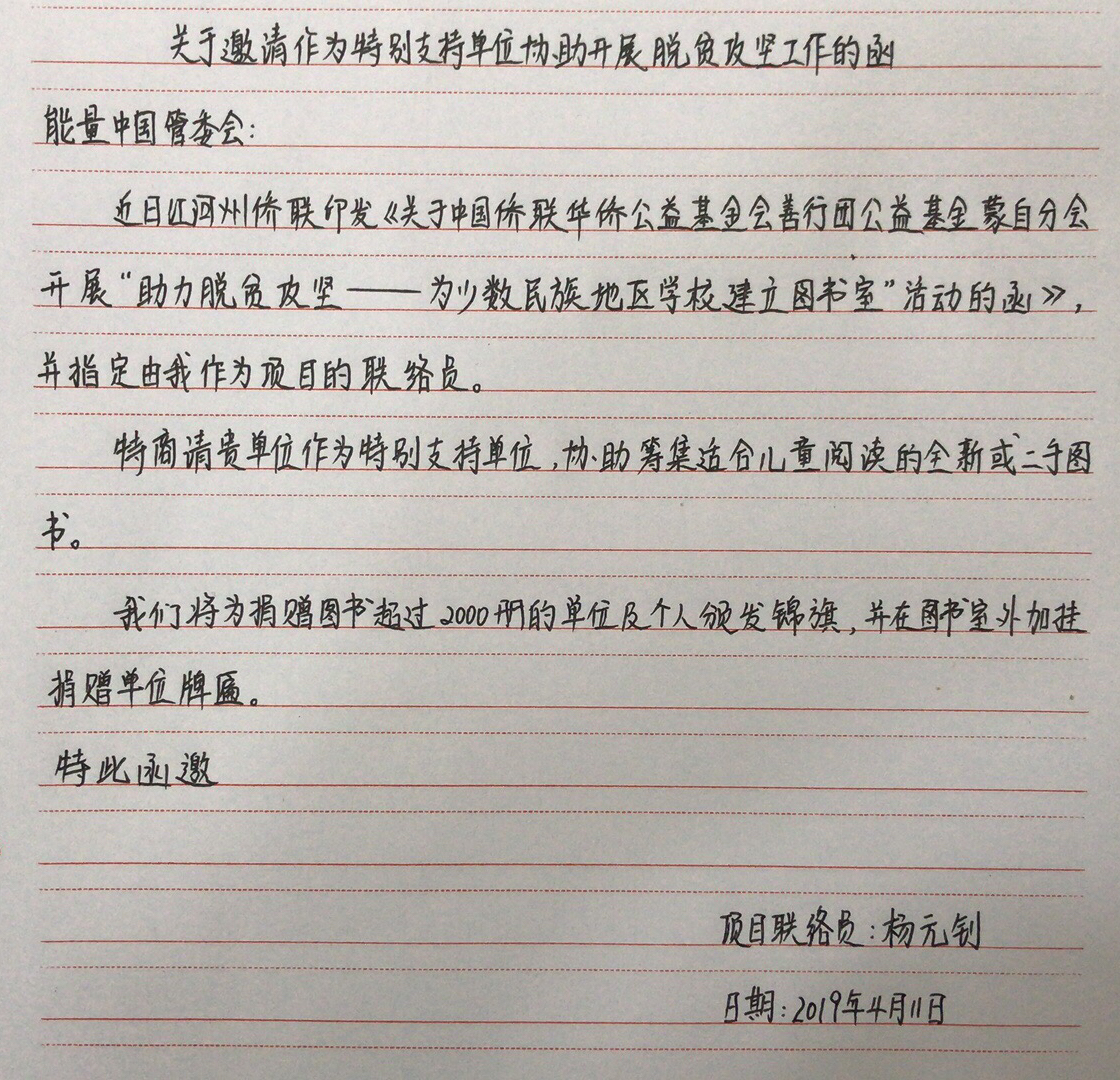 关于邀请作为特别支持单位协助开展脱贫攻坚工作的函
能量中国管委会:
近日红河州侨联印发《关于中国侨联华侨公益基金会善行团公益基金蒙自分会
开展“助力脱贫攻坚——为少数民族地区学校建立图书室”活动的函》,
并指定由我作为项目的联络员。
特商请贵单位作为特别支持单位,协助筹集适合儿童阅读的全新或二手图
书。
我们将为捐赠图书超过2000册的单位及个人颁发锦旗,并在图书室外加挂
捐赠单位牌匾。
特此函邀
项目联络员:杨元钊
日期:2019年4月11日